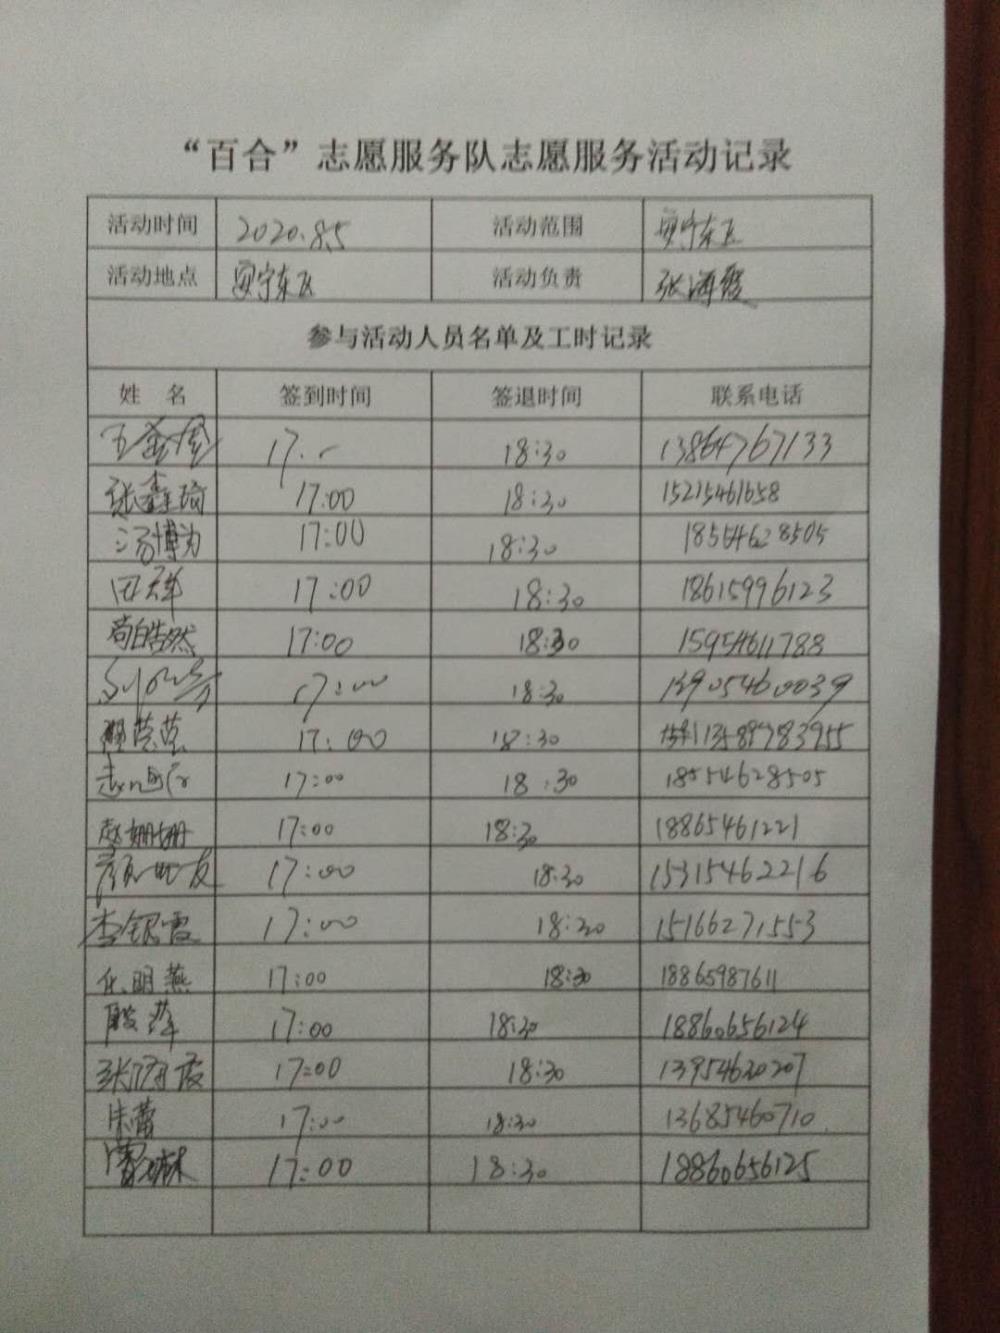 “百合”志愿服务队志愿服务活动记录
活动时间 2020.8.5 活动范围 安宁东区
活动地点 安宁东区 活动负责 张海霞
参与活动人员名单及工时记录
姓 名 签到时间 签退时间 联系电话
17. 18:30 13864767133
张鑫琦 17:00 18:30 15215461658
汤博为 17:00 18:30 18554628505
田苹 17:00 18:30 18615996123
苟皓然 17:00 18:30 15954611788
17:00 18:30 13905460039
17:00 18:30
17:00 18:30 18554628505
赵姗姗 17:00 18:30 18865461221
17:00 18:30 15315462216
李银霞 17:00 18:30 15166271553
任明燕 17:00 18:30 18865987611
殷萍 17:00 18:30 18860656124
张海霞 17:00 18:30 13954620207
朱蕾 17:00 18:30 13685460710
17:00 18:30 18860656125